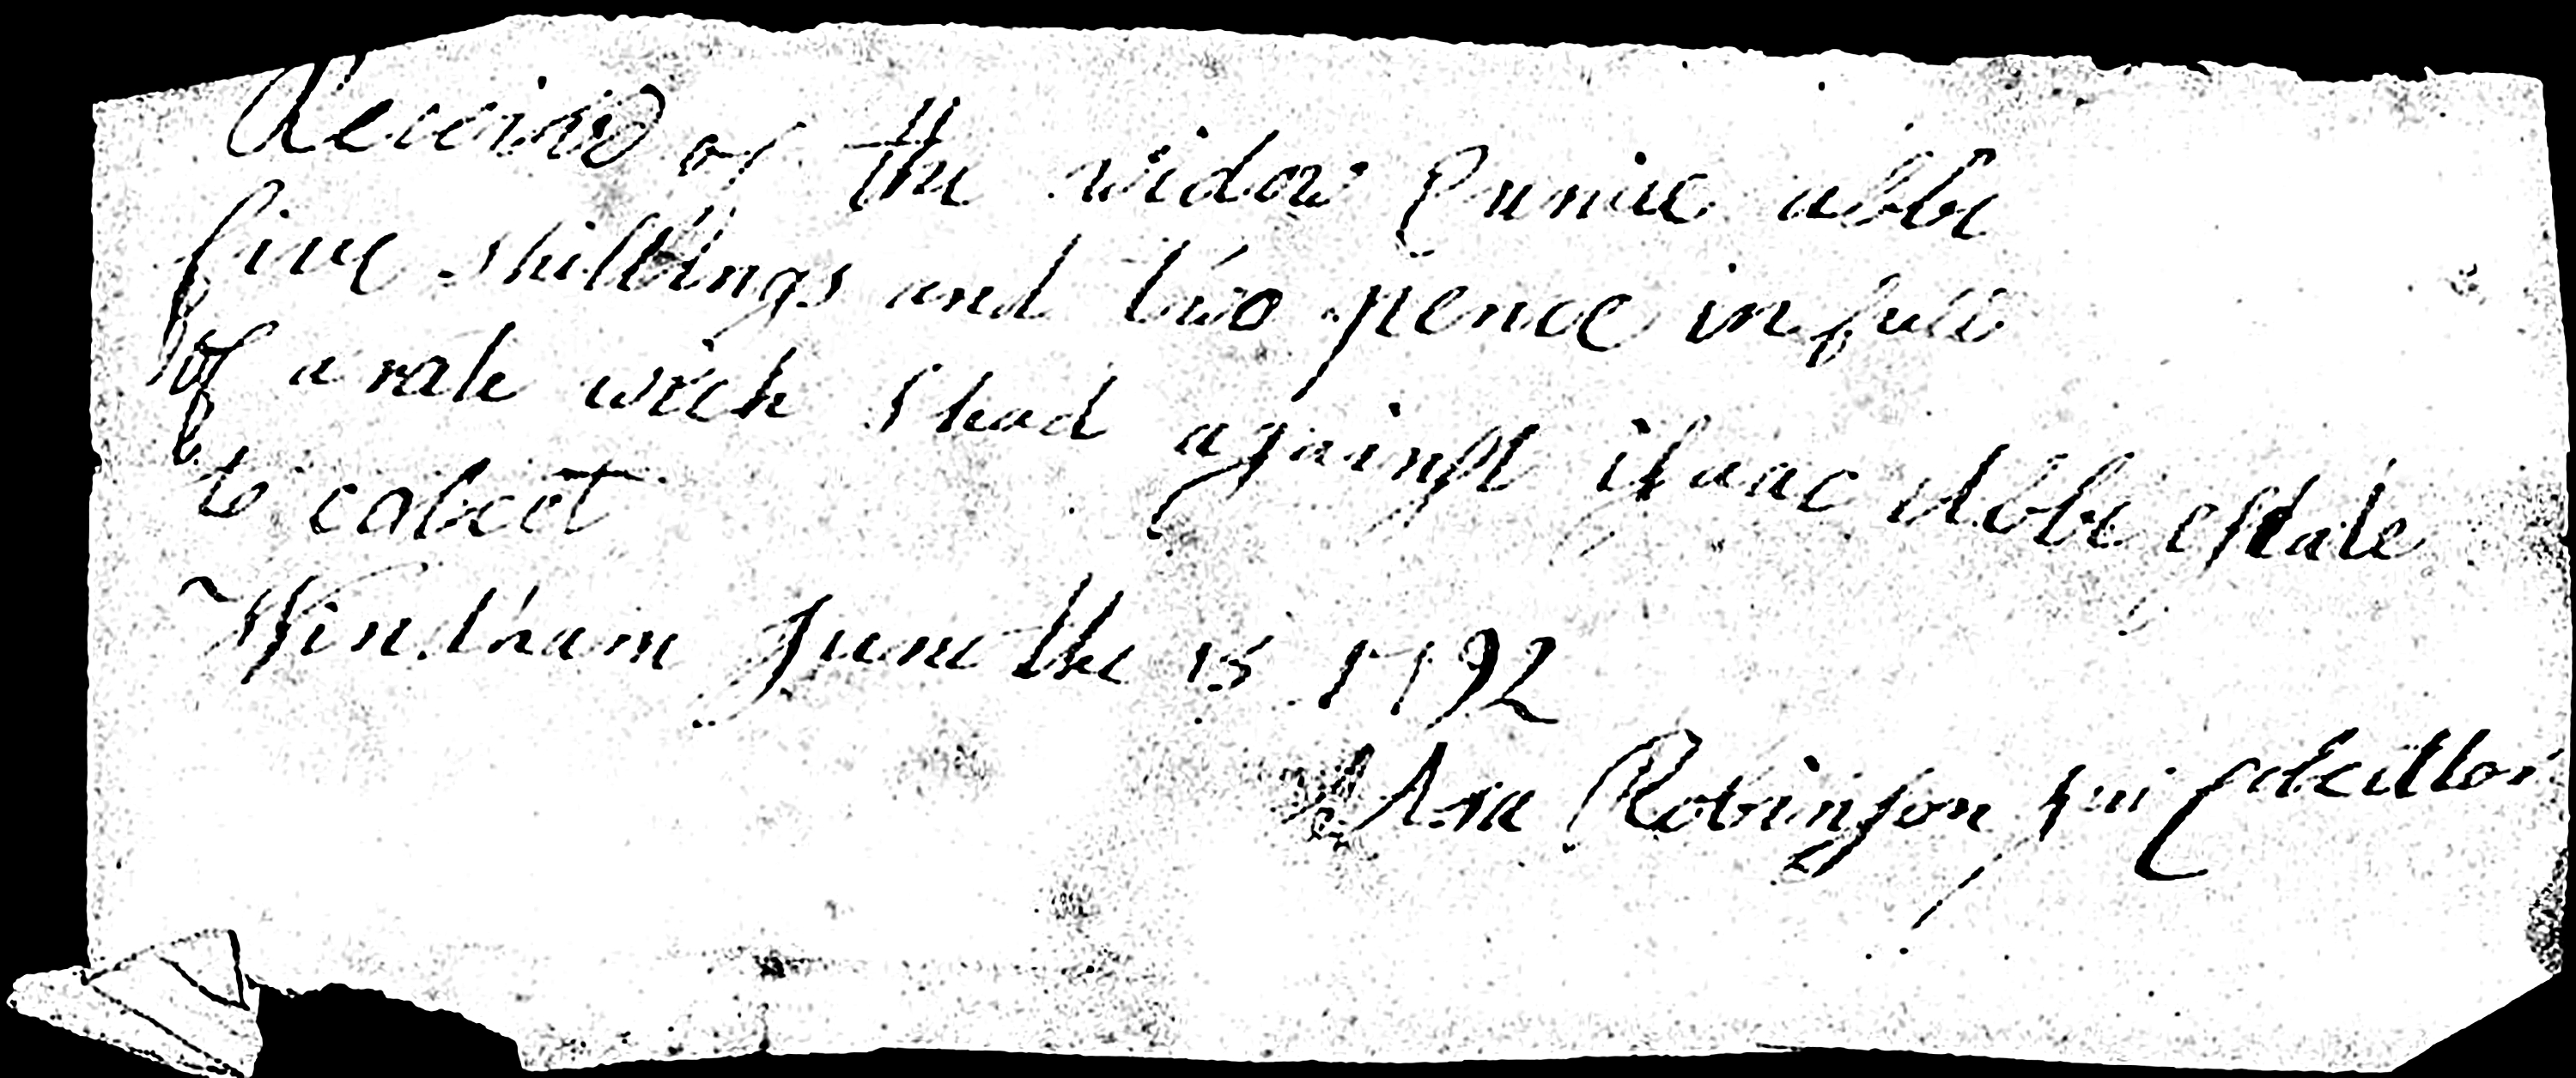 Received of the widow Eunice abbe
five shillings and two pence in full
of a rate wich I had against isaac Abbe estate
to colect
Windham June the 15 1792
Asa Robinson Colecttor